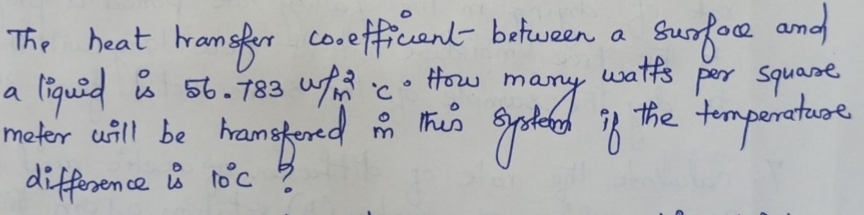 The heat transfer co.efficient between a surface and
a liquid is 56.783 w/m² °c. How many watts per square
meter will be transfered in this system if the temperature
difference is 10°c ?